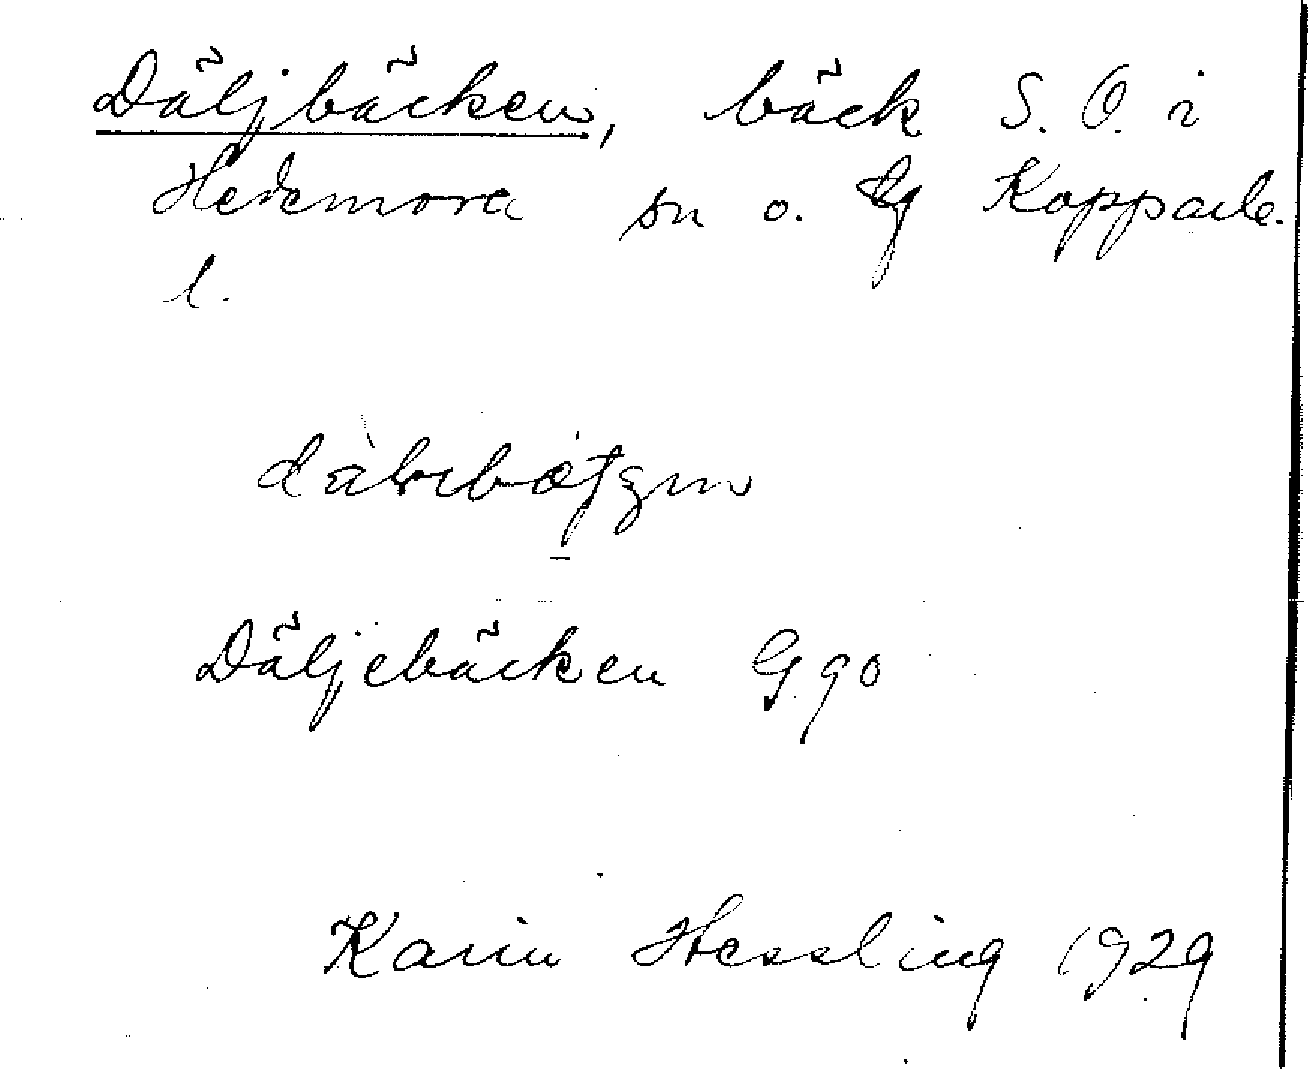 Däljbäcken, bäck S. O. i
Hedemora sn o. lg Kopparb.
l.
Däljebäcken G 90
Karin Hessling 1929